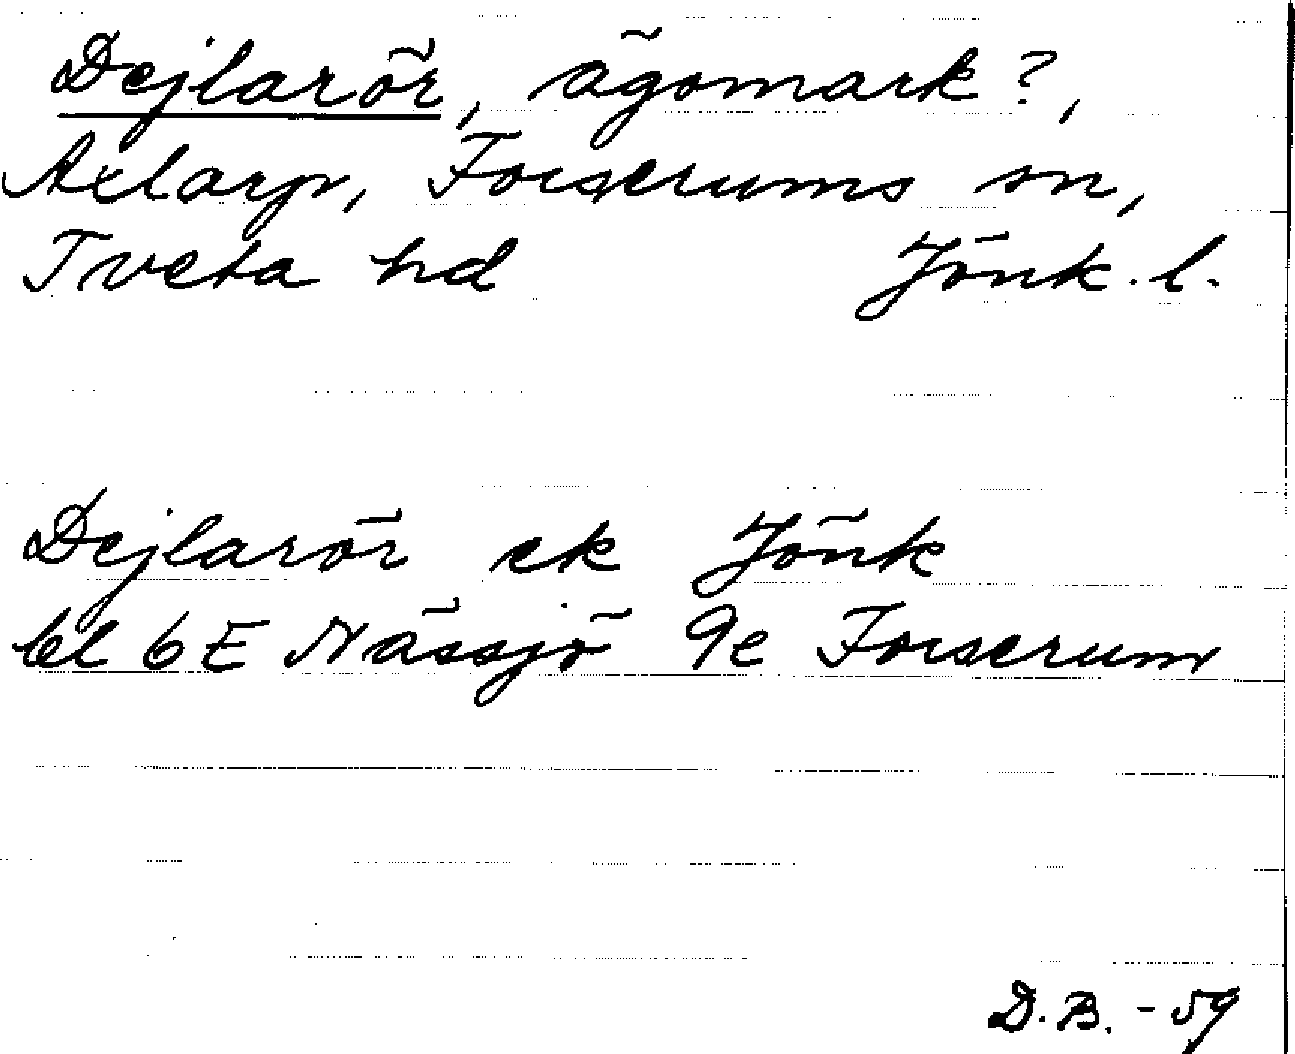 Dejlarör, ägomark?,
Axlarp, Forserums sn,
Tveta hd Jönk. l.
Dejlarör ek Jönk
bl 6E Nässjö 9e Forserum
D.B. - 59